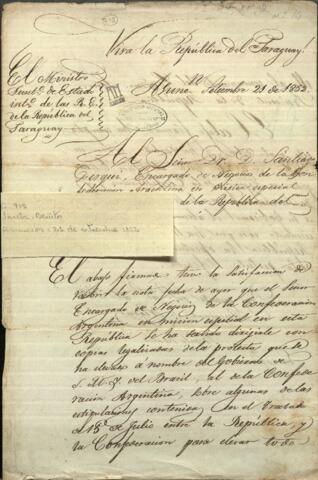 Viva la República del Paraguay!
El Ministro
Secret.º de Estado
int.º de las R. E.
de la República del
Paraguay
Asunc.ⁿ Setiembre 21 de 1852.
Al Señor Dr. D. Santiago
Derqui, Encargado de Negocios de la Con
federacion Argentina en mision especial
de la República del
Asuncion: 21 de setiembre 1852
El abajo firmado tiene la satisfaccion de
la nota fecha de ayer que el Señor
Encargado de Negocios de la Confederacion
Argentina en mision especial en esta
República se ha servido dirigirle con
copias legalizadas de la protesta que se
ha hecho a nombre del Gobierno de
S. M. Y. del Brasil, al de la Confede
racion Argentina, sobre algunas de las
estipulaciones contenidas en el Tratado
de 15 de Julio entre la República, y
la Confederacion para elevar todo